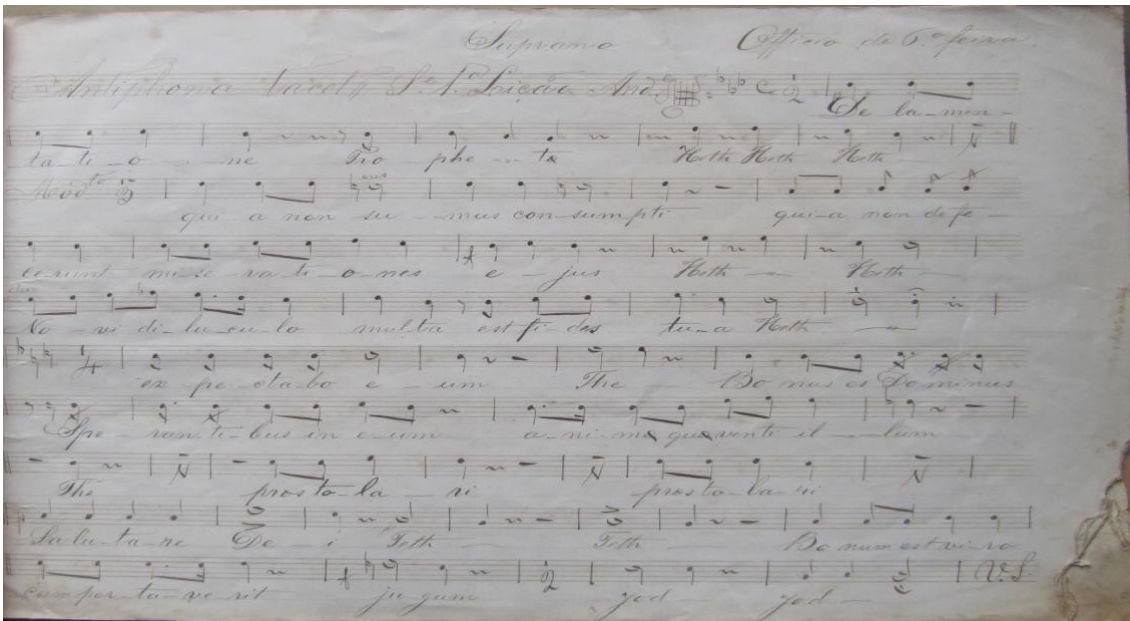 Suprano Officio de 6.ª feira.
Antiphona Tacet 1.ª Lição And.e
De la-men-
ta-ti-o-ne Pro-phe-tæ Heth Heth Heth
Mod.to
qui a non su-mus con-sumpti qui-a non defe-
cerunt mi-se-ra-ti-o-nes e-jus Heth Heth
No-vi di-lu-cu-lo multa est fi-des tu-a Heth
ex-pe-cta-bo e-um The Bo nus es Dominus
Spe-ran-ti-bus in e-um a-ni-mæ quærenti il-lum
The præs to-la-ri præs to-la-ri
Sa lu-ta-re De-i Teth Teth Bo num est vi-ro
cum por-ta-ve-rit ju gum Jod Jod V.S.